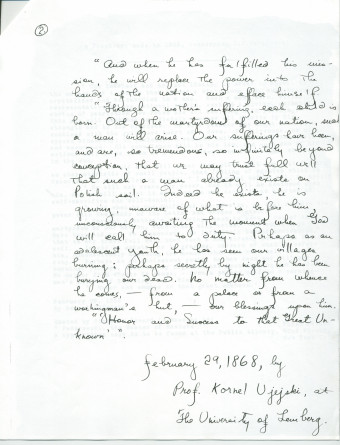 ②
"And when he has fulfilled his mis-
sion, he will replace the power into the
hands of the nation and efface himself
"Through a mother's suffering, each child is
born. Out of the martyrdom of our nation, such
a man will arise. Our sufferings have been,
and are, so tremendous, so infinitely beyond
conception, that we may trust full well
that such a man already exists on
Polish soil. Indeed he exists, he is
growing, unaware of what is before him,
unconsciously awaiting the moment when God
will call him to duty. Perhaps as an
adolescent youth, he has seen our villages
burning; perhaps secretly by night he has been
burying our dead. No matter from whence
he comes, — from a palace or from a
workingman's hut, — our blessings upon him.
"'Honor and Success to that Great Un-
known'".
February 29, 1868, by
Prof. Kornel Ujejski, at
The University of Lemberg.